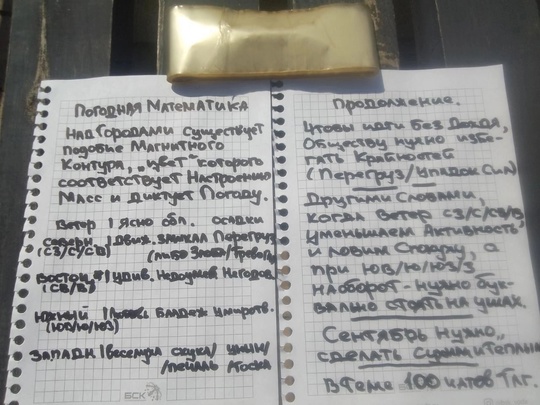 Погодная Математика
Над Городами существует
подобие Магнитного
Контура, "цвет" которого
соответствует Настроению
Масс и диктует Погоду.
Ветер | Ясно обл. осадки
Северн | Движ. Закалка Перегруз
(СЗ/С/СВ) (либо Злоба/Тревога)
Восточн | удив. Недоумен Негодов
(СВ/В)
Южный | Блаж Умиротв.
(ЮВ/Ю/ЮЗ)
Западн | Веселуха скука/ унын/
/печаль тоска
БСК
Продолжение.
Чтобы идти без Дождя,
Обществу нужно избе-
гать Крайностей
(Перегруз/Упадок Сил)
Другими Словами,
когда Ветер СЗ/С/СВ/В
уменьшаем Активность,
и ловим Скуку, а
при ЮВ/Ю/ЮЗ/З
наоборот - нужно бук-
вально стоять на ушах.
Сентябрь нужно
сделать Сухим и Теплым
В теме 100 чатов Тлг.
БСК